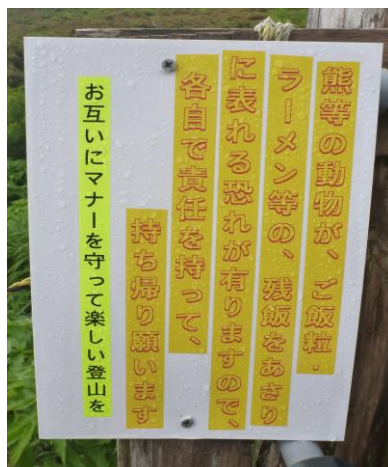 熊等の動物が、ご飯粒・
ラーメン等の、残飯をあさり
に表れる恐れが有りますので、
各自で責任を持って、
持ち帰り願います
お互いにマナーを守って楽しい登山を